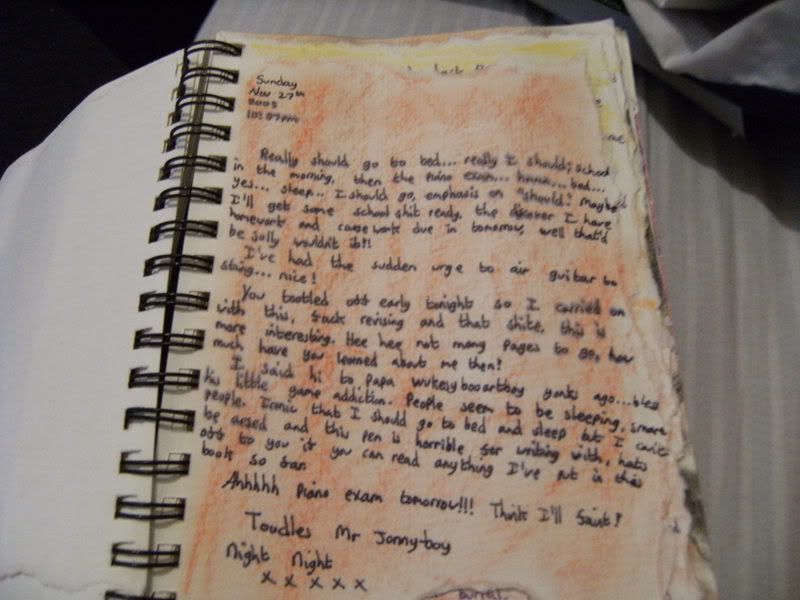 Sunday
Nov 27th
2005
10:57pm
Really should go to bed... really I should; school
in the morning, then the piano exam... hmmm... bed...
yes... sleep.. I should go, emphasis on "should". Maybe
I'll get some school shit ready, the discover I have
homework and coursework due in tomorrow, well that'd
be jolly wouldn't it!!
I've had the sudden urge to air guitar to
sting... nice!
You tootled off early tonight so I carried on
with this, fuck revising and that shite, this is
more interesting. Hee hee not many pages to go, how
much have you learned about me then!
I said hi to Papa yonks ago...bless
his little game addiction. People seem to be sleeping, smart
people. Ironic that I should go to bed and sleep but I can't
be arsed and this pen is horrible for writing with, hats
off to you if you can read anything I've put in this
book so far.
Ahhhhh Piano exam tomorrow!!! Think I'll faint!
Toodles Mr Jonny-boy
Night Night
x x x x x